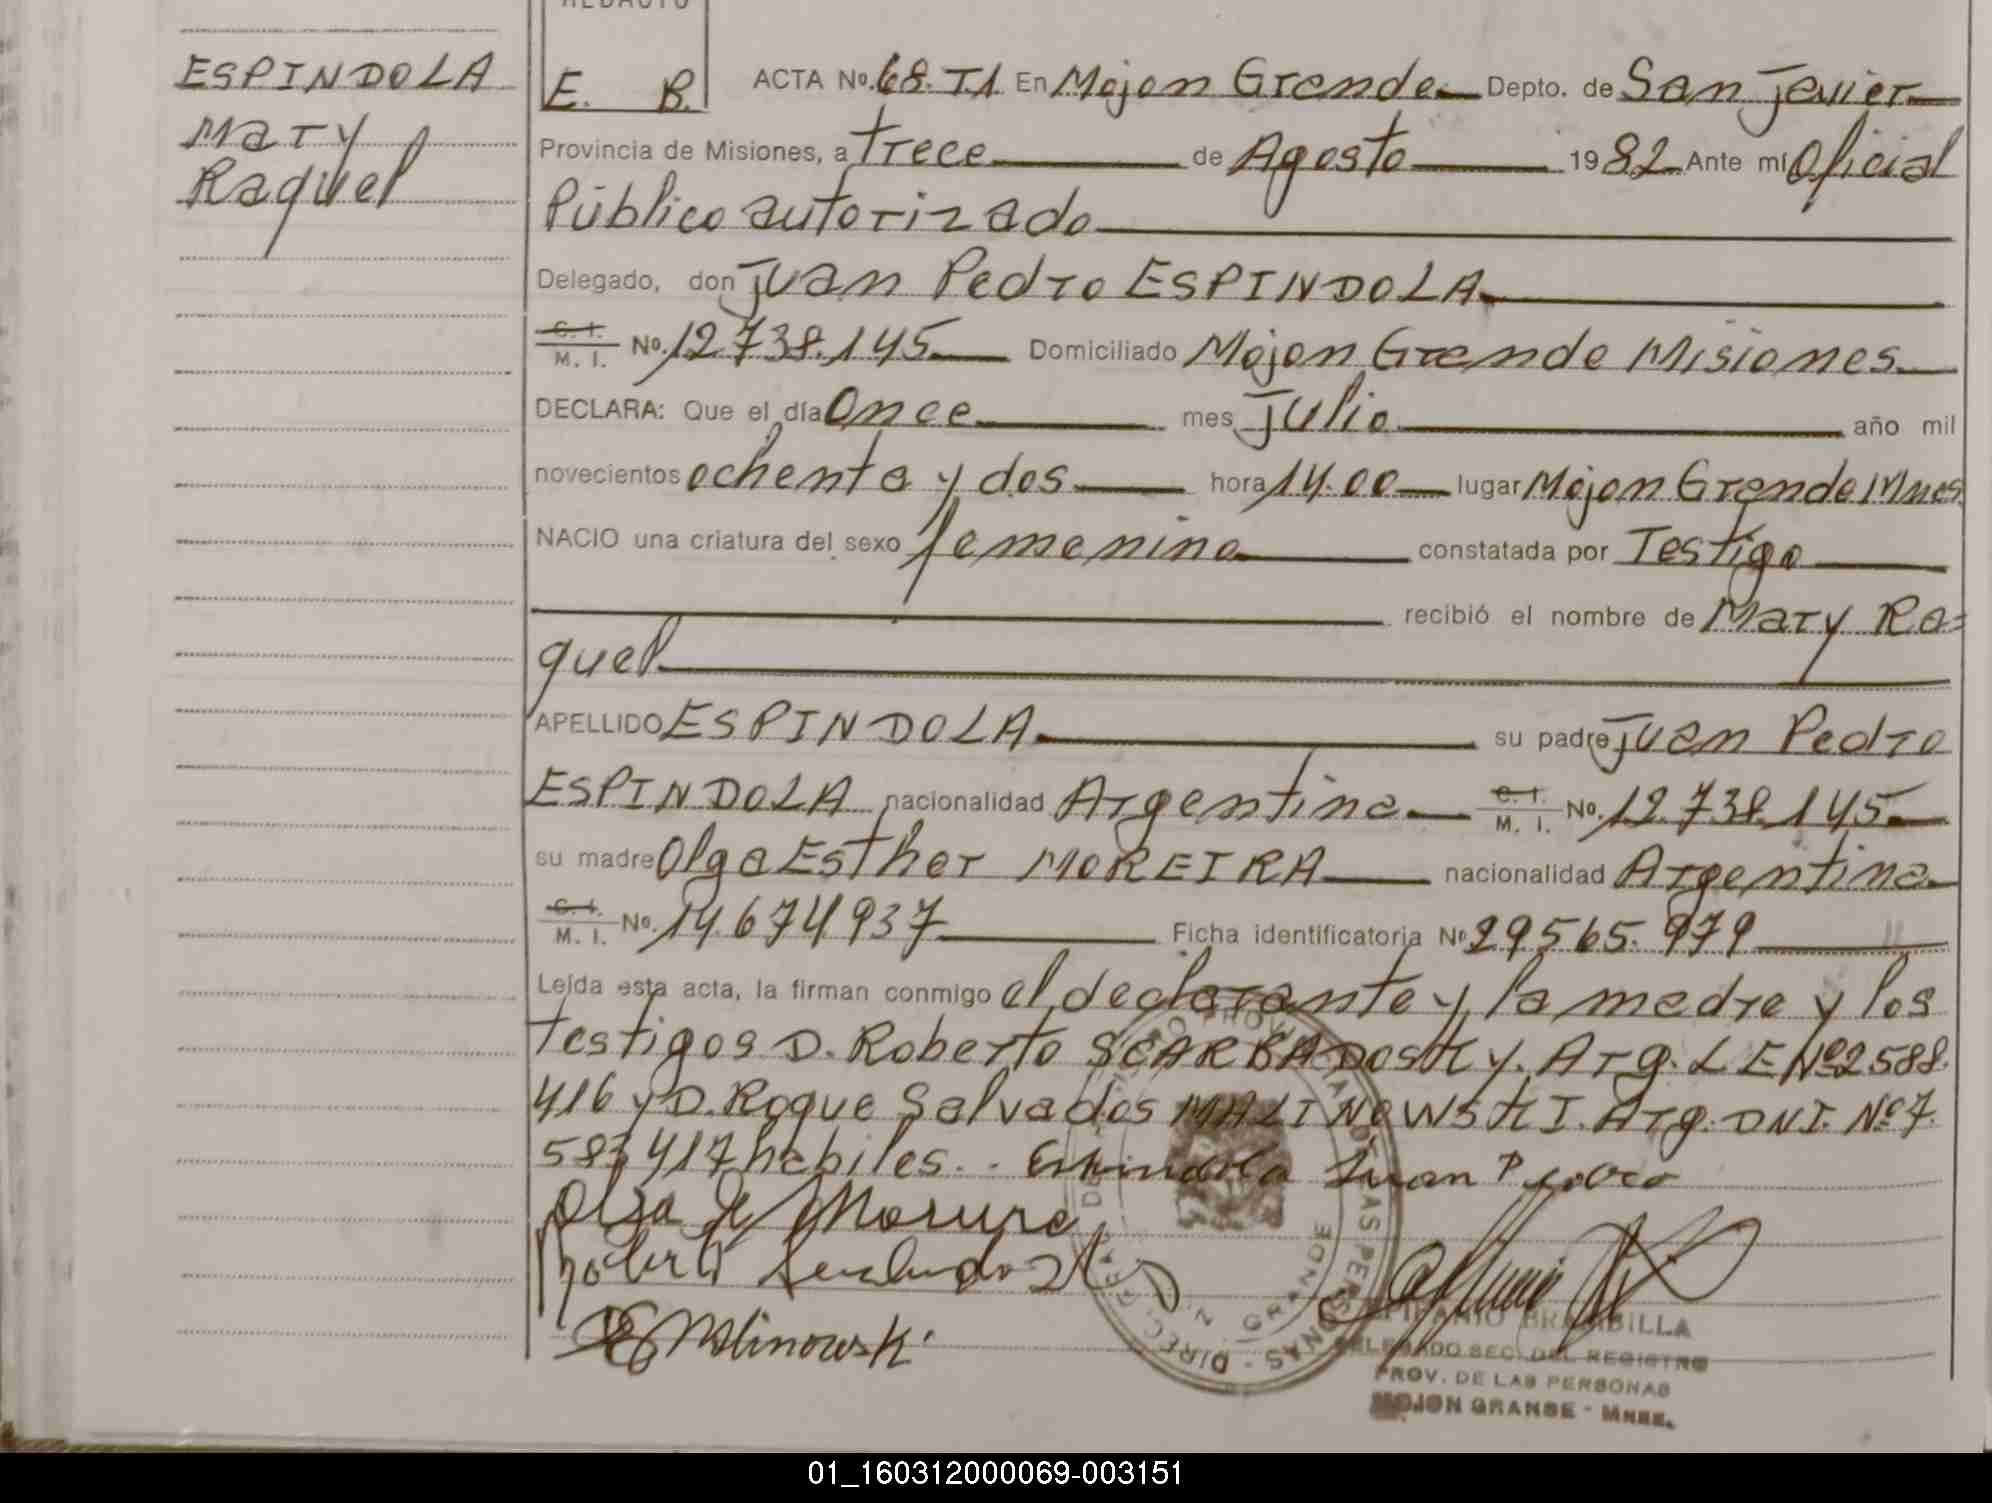 REDACTO
ESPINDOLA
Mary
Raquel
E. B.
ACTA No. 68. T.1 En Mojon Grande Depto. de San Javier
Provincia de Misiones, a trece de Agosto 1982 Ante mí Oficial
Público autorizado
Delegado, don Juan Pedro ESPINDOLA
C. I.
M. I. No. 12.738.145 Domiciliado Mojon Grande Misiones
DECLARA: Que el día Once mes Julio año mil
novecientos ochenta y dos hora 14.00 lugar Mojon Grande Mnes
NACIO una criatura del sexo femenino constatada por Testigo
recibió el nombre de Mary Ra=
quel
APELLIDO ESPINDOLA su padre Juan Pedro
ESPINDOLA nacionalidad Argentina C. I. M. I. No. 12.738.145
su madre Olga Esther MOREIRA nacionalidad Argentina
C. I.
M. I. No. 14.674.937 Ficha identificatoria No 29565.979
Leída esta acta, la firman conmigo el declarante y la madre y los
testigos D. Roberto SCARBADOSKY. Arg. L E Nº 2588.
416 y D. Roque Salvados MALINOWSKI. Arg. DNI. Nº 7.
583 417 habiles.. Espindola Juan Pedro
Olga E Moreira
Malinowski
BRAMBILLA
DELEGADO SEC. DEL REGISTRO
PROV. DE LAS PERSONAS
MOJON GRANDE - Mnes.
01_160312000069-003151